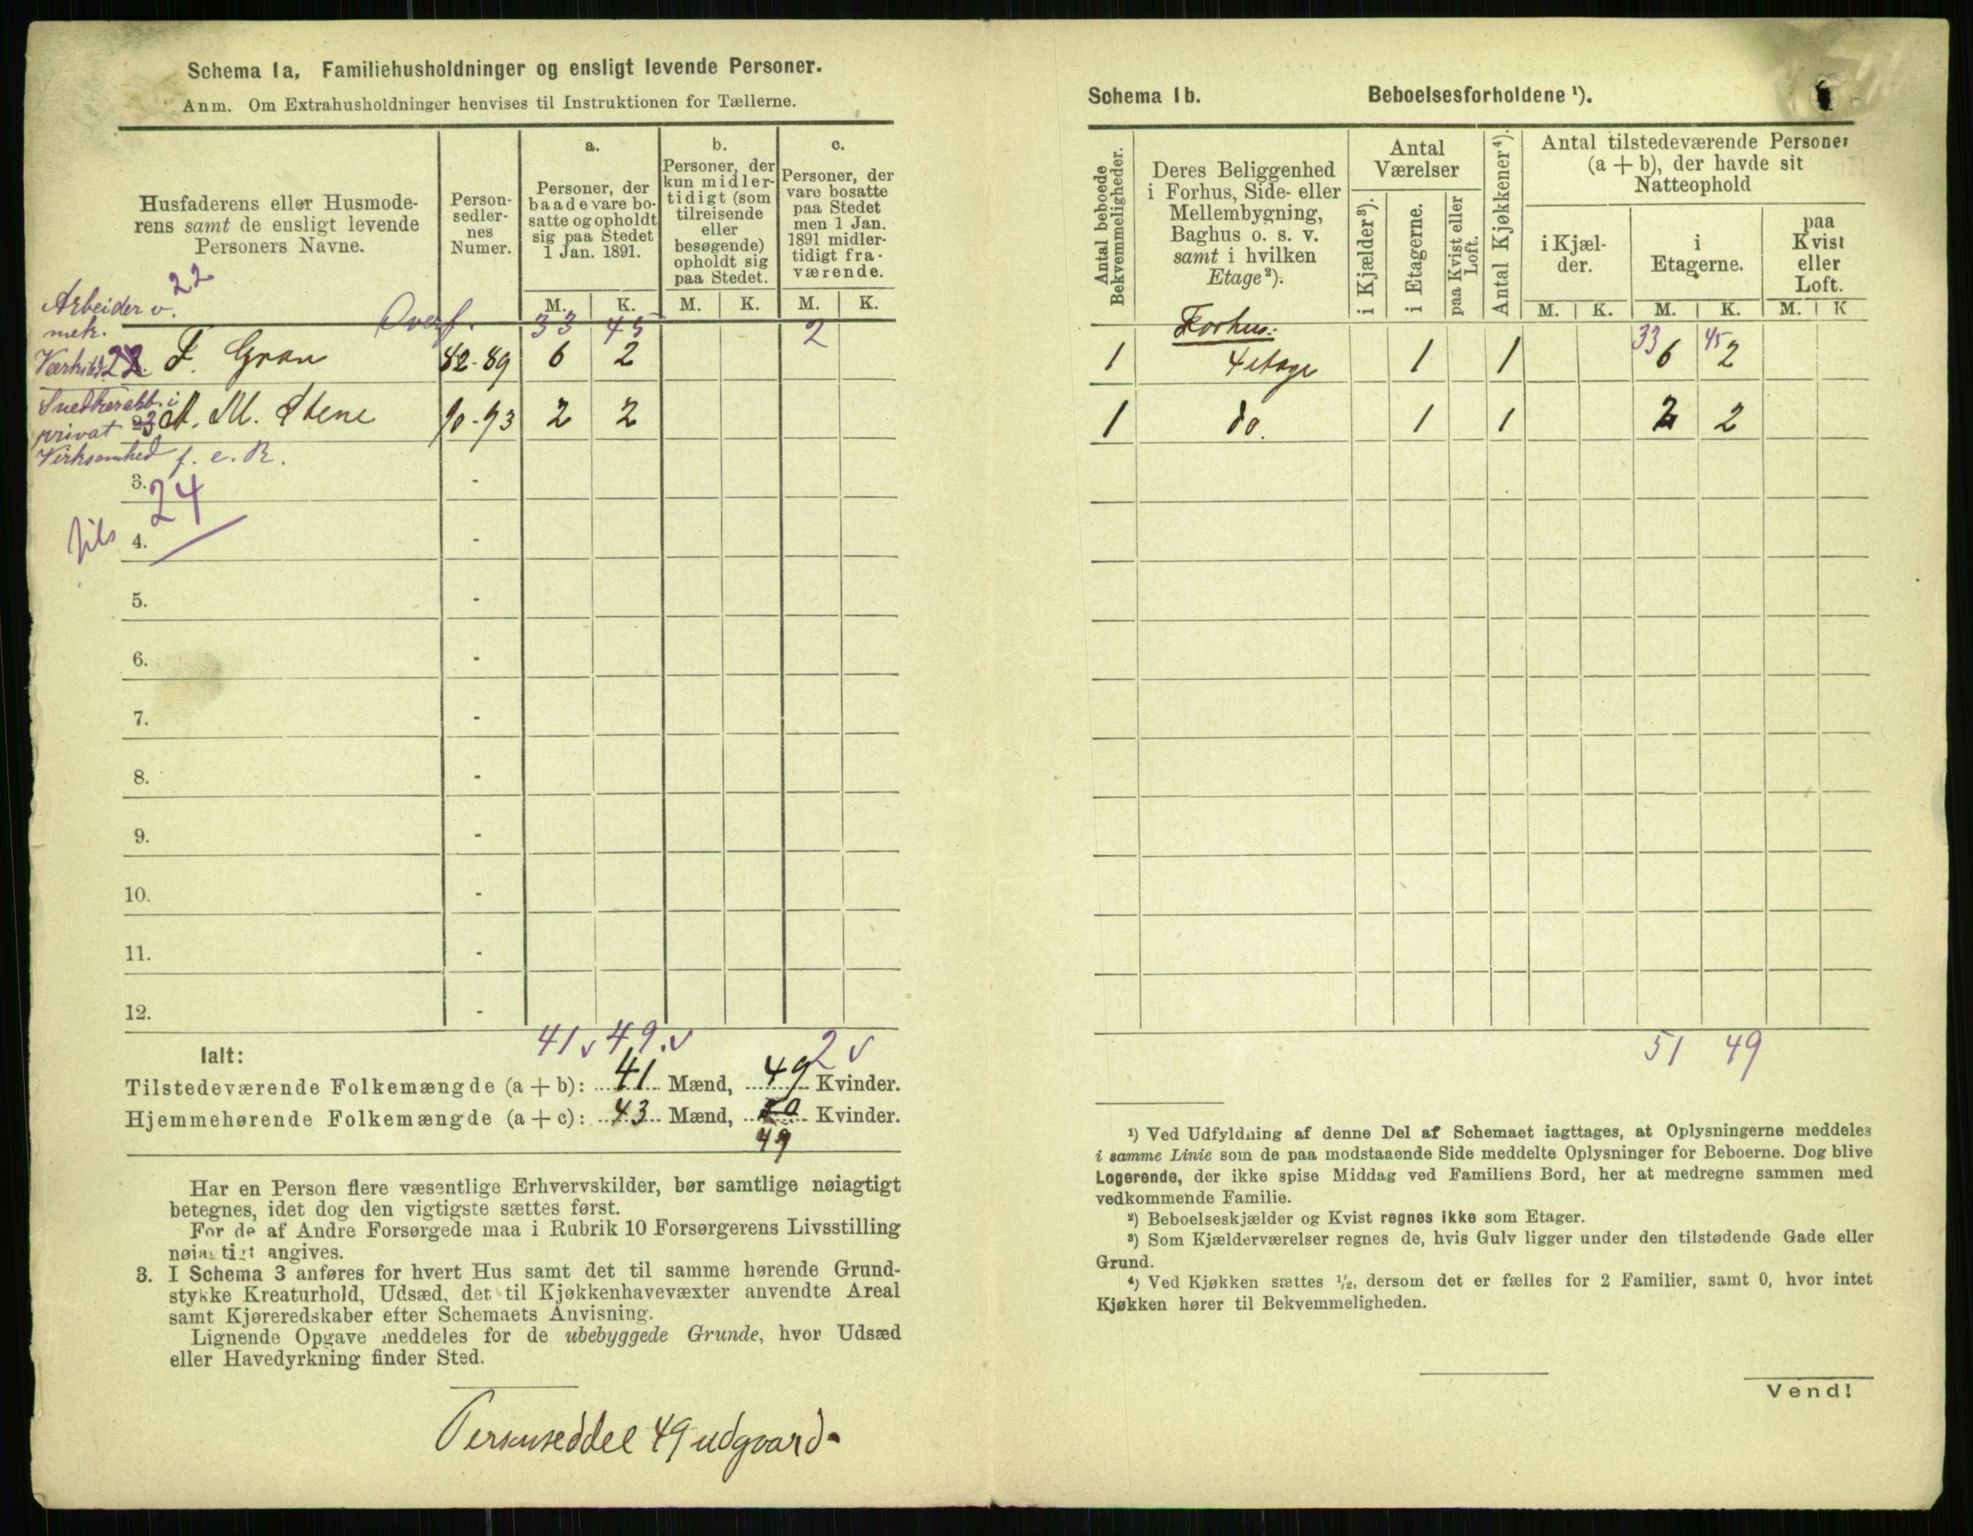 Schema Ia, Familiehusholdninger og ensligt levende Personer.
Anm. Om Extrahusholdninger henvises til Instruktionen for Tællerne.
Husfaderens eller Husmode-
rens samt de ensligt levende
Personers Navne.
Person-
sedler-
nes
Numer.
a.
Personer, der
baade vare bo-
satte og opholdt
sig paa Stedet
1 Jan. 1891.
b.
Personer, der
kun midler-
tidigt (som
tilreisende
eller
besøgende)
opholdt sig
paa Stedet.
c.
Personer, der
vare bosatte
paa Stedet
men 1 Jan.
1891 midler-
tidigt fra-
værende.
M. K. M. K. M. K.
22
Arbeider v.
mek.
Overf. 33 45 2
Værksted. 22 F. Gran 82-89 6 2
Snedkerabb. i
privat 23 A. M. Stene 90-93 2 2
Virksomhed f. e. R.
3. -
24
4. -
5. -
6. -
7. -
8. -
9. -
10. -
11. -
12. -
41 v 49. v 2 v
Ialt:
Tilstedeværende Folkemængde (a + b): 41 Mænd, 49 Kvinder.
Hjemmehørende Folkemængde (a + c): 43 Mænd, 50 Kvinder.
49
Har en Person flere væsentlige Erhvervskilder, bør samtlige nøiagtigt
betegnes, idet dog den vigtigste sættes først.
For de af Andre Forsørgede maa i Rubrik 10 Forsørgerens Livsstilling
nøiagtigt angives.
3. I Schema 3 anføres for hvert Hus samt det til samme hørende Grund-
stykke Kreaturhold, Udsæd, det til Kjøkkenhavevæxter anvendte Areal
samt Kjøreredskaber efter Schemaets Anvisning.
Lignende Opgave meddeles for de ubebyggede Grunde, hvor Udsæd
eller Havedyrkning finder Sted.
Personseddel 49 udgaard.
Schema Ib. Beboelsesforholdene ¹).
Antal beboede
Bekvemmeligheder.
Deres Beliggenhed
i Forhus, Side- eller
Mellembygning,
Baghus o. s. v.
samt i hvilken
Etage²).
Antal
Værelser
i Kjælder³).
i Etagerne.
paa Kvist eller
Loft.
Antal Kjøkkener⁴).
Antal tilstedeværende Personer
(a + b), der havde sit
Natteophold
i Kjæl-
der.
i
Etagerne.
paa
Kvist
eller
Loft.
M. K. M. K. M. K
Forhus: 33 45
1 4 etage 1 1 6 2
1 do. 1 1 2 2
51 49
¹) Ved Udfyldning af denne Del af Schemaet iagttages, at Oplysningerne meddeles
i samme Linie som de paa modstaaende Side meddelte Oplysninger for Beboerne. Dog blive
Logerende, der ikke spise Middag ved Familiens Bord, her at medregne sammen med
vedkommende Familie.
²) Beboelseskjælder og Kvist regnes ikke som Etager.
³) Som Kjælderværelser regnes de, hvis Gulv ligger under den tilstødende Gade eller
Grund.
⁴) Ved Kjøkken sættes ½, dersom det er fælles for 2 Familier, samt 0, hvor intet
Kjøkken hører til Bekvemmeligheden.
Vend!